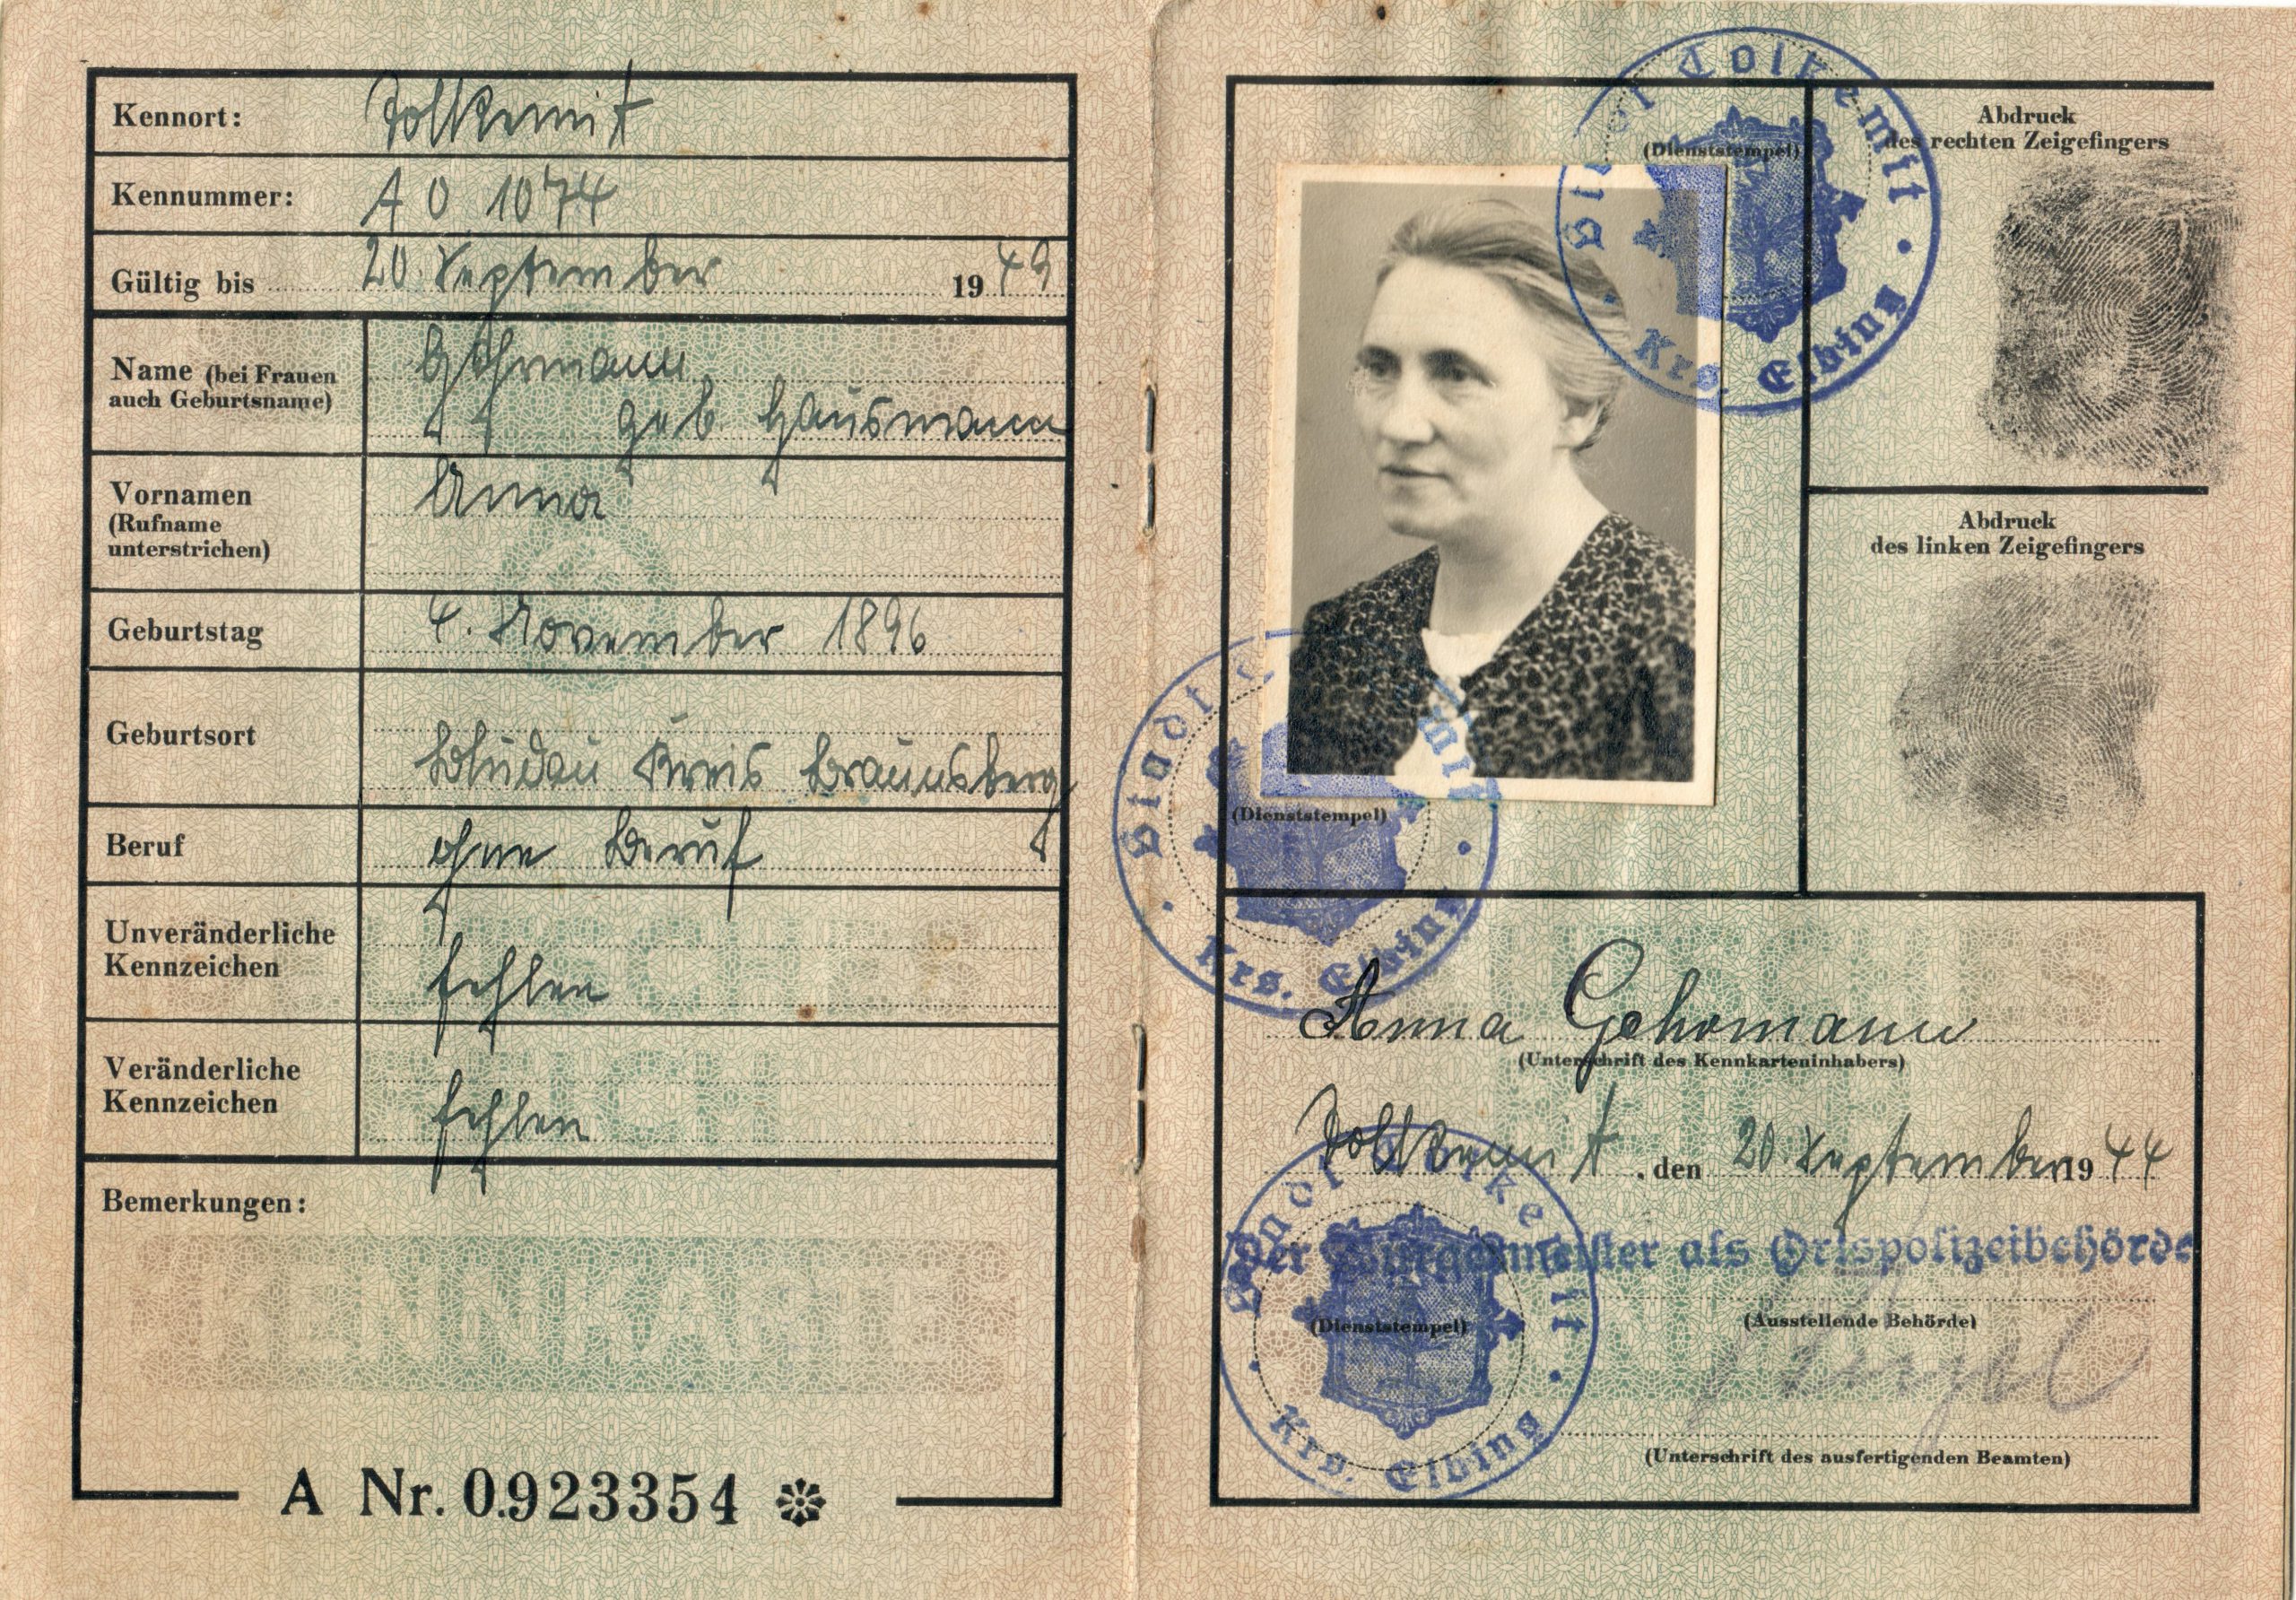 Kennort: Tolkemit
Kennummer: A 0 1074
Gültig bis 20. September 1949
Name (bei Frauen
auch Geburtsname)
Gehrmann
geb. Hausmann
Vornamen
(Rufname
unterstrichen)
Anna
Geburtstag 4. November 1896
Geburtsort
Bludau Kreis Braunsberg
Beruf ohne Beruf
Unveränderliche
Kennzeichen
fehlen
Veränderliche
Kennzeichen
fehlen
Bemerkungen:
DEUTSCHES
REICH
KENNKARTE
A Nr. 0.923354
Stadt Tolkemit
Krs. Elbing
(Dienststempel)
Abdruck
des rechten Zeigefingers
Abdruck
des linken Zeigefingers
Stadt Tolkemit
Krs. Elbing
(Dienststempel)
Anna Gehrmann
(Unterschrift des Kennkarteninhabers)
Tolkemit, den 20. September 1944
Stadt Tolkemit
Krs. Elbing
Der Bürgermeister als Ortspolizeibehörde
(Dienststempel)
(Ausstellende Behörde)
(Unterschrift des ausfertigenden Beamten)